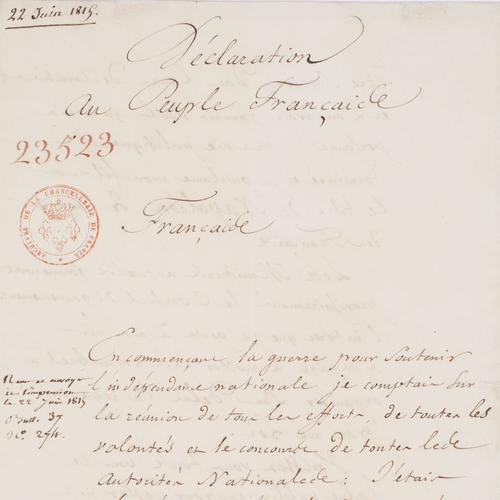 22 Juin 1815.
Déclaration
au Peuple Française
23523
ARCHIVES DE LA CHANCELLERIE DE FRANCE
Française
En commençant la guerre pour soutenir
l'indépendance nationale je comptais sur
la réunion de tous les efforts, de toutes les
volontés et le concours de toutes les
autorités Nationales : J'étais
l'impression
le 22 Juin 1815
Bull. 37
N.º 274.